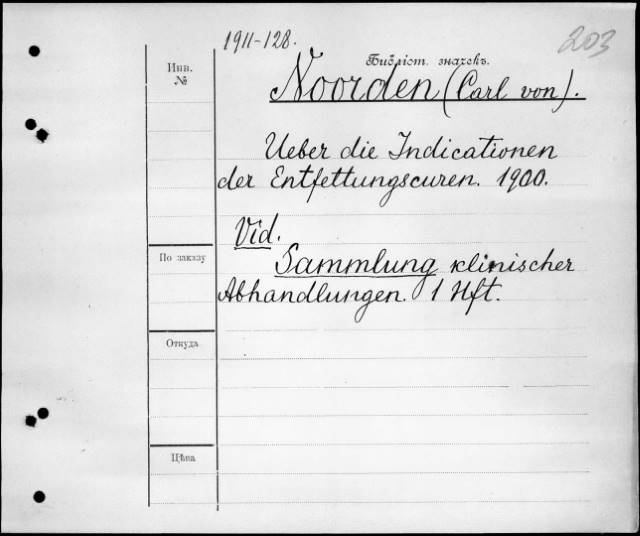 1911-128.
203
Инв.
№
Библіот. значекъ.
Noorden (Carl von).
Ueber die Indicationen
der Entfettungscuren. 1900.
Vid.
Sammlung klinischer
По заказу
Abhandlungen. 1 Hft.
Откуда
Цѣна